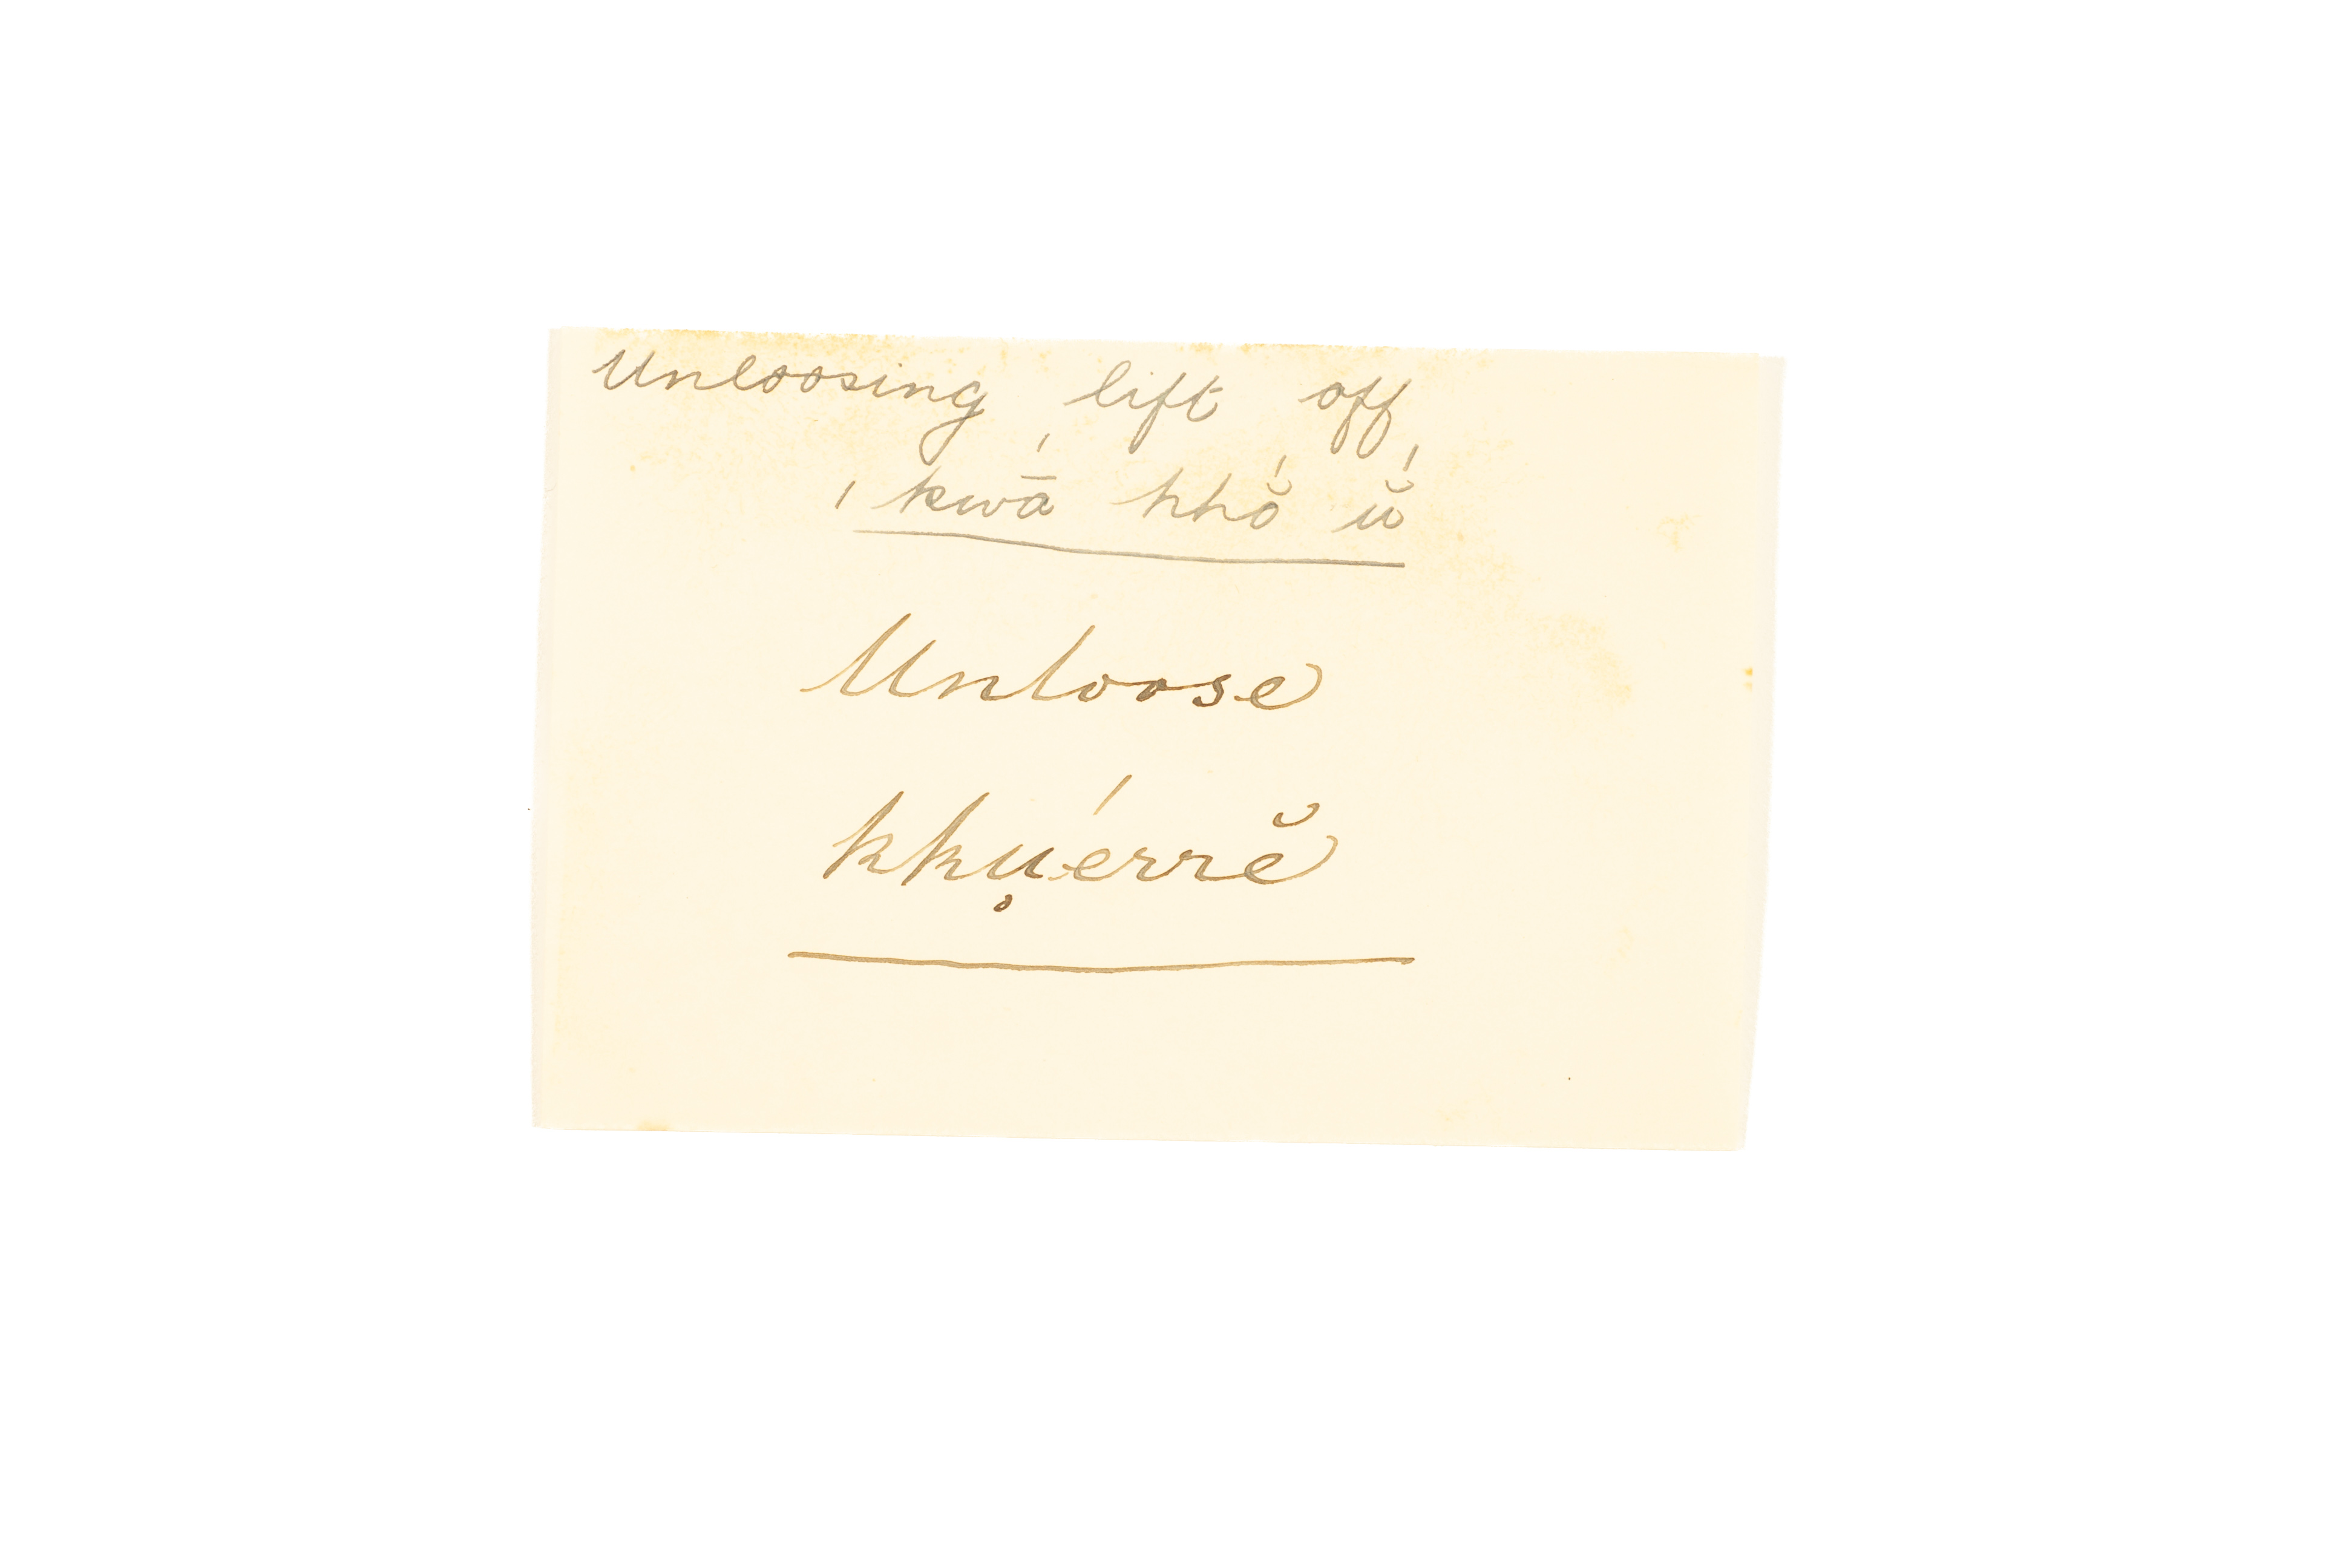 Unloosing lift off
ˌkwā́ hhŏ́ ŭ́
Unloose
kkụérrĕ